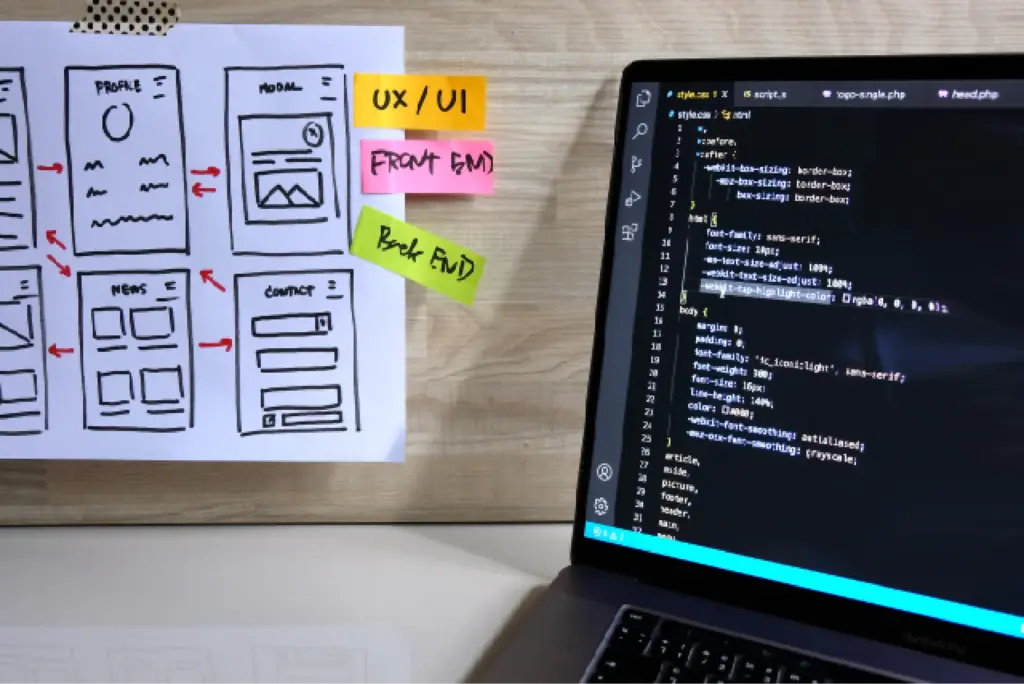 PROFILE
MODAL
NEWS
CONTACT
UX / UI
FRONT END
Back END
style.css
script.js
logo-single.php
head.php
style.css
html
1 *,
2 *:before,
3 *:after {
4 -webkit-box-sizing: border-box;
5 -moz-box-sizing: border-box;
6 box-sizing: border-box;
7 }
8 html {
9 font-family: sans-serif;
10 font-size: 10px;
11 -ms-text-size-adjust: 100%;
12 -webkit-text-size-adjust: 100%;
13 -webkit-tap-highlight-color: rgba(0, 0, 0, 0);
14 }
15 body {
16 margin: 0;
17 padding: 0;
18 font-family: "ic_icon:light", sans-serif;
19 font-weight: 300;
20 font-size: 16px;
21 line-height: 140%;
22 color: #000;
23 -webkit-font-smoothing: antialiased;
24 -moz-osx-font-smoothing: grayscale;
25 }
26 article,
27 aside,
28 picture,
29 footer,
30 header,
31 main,